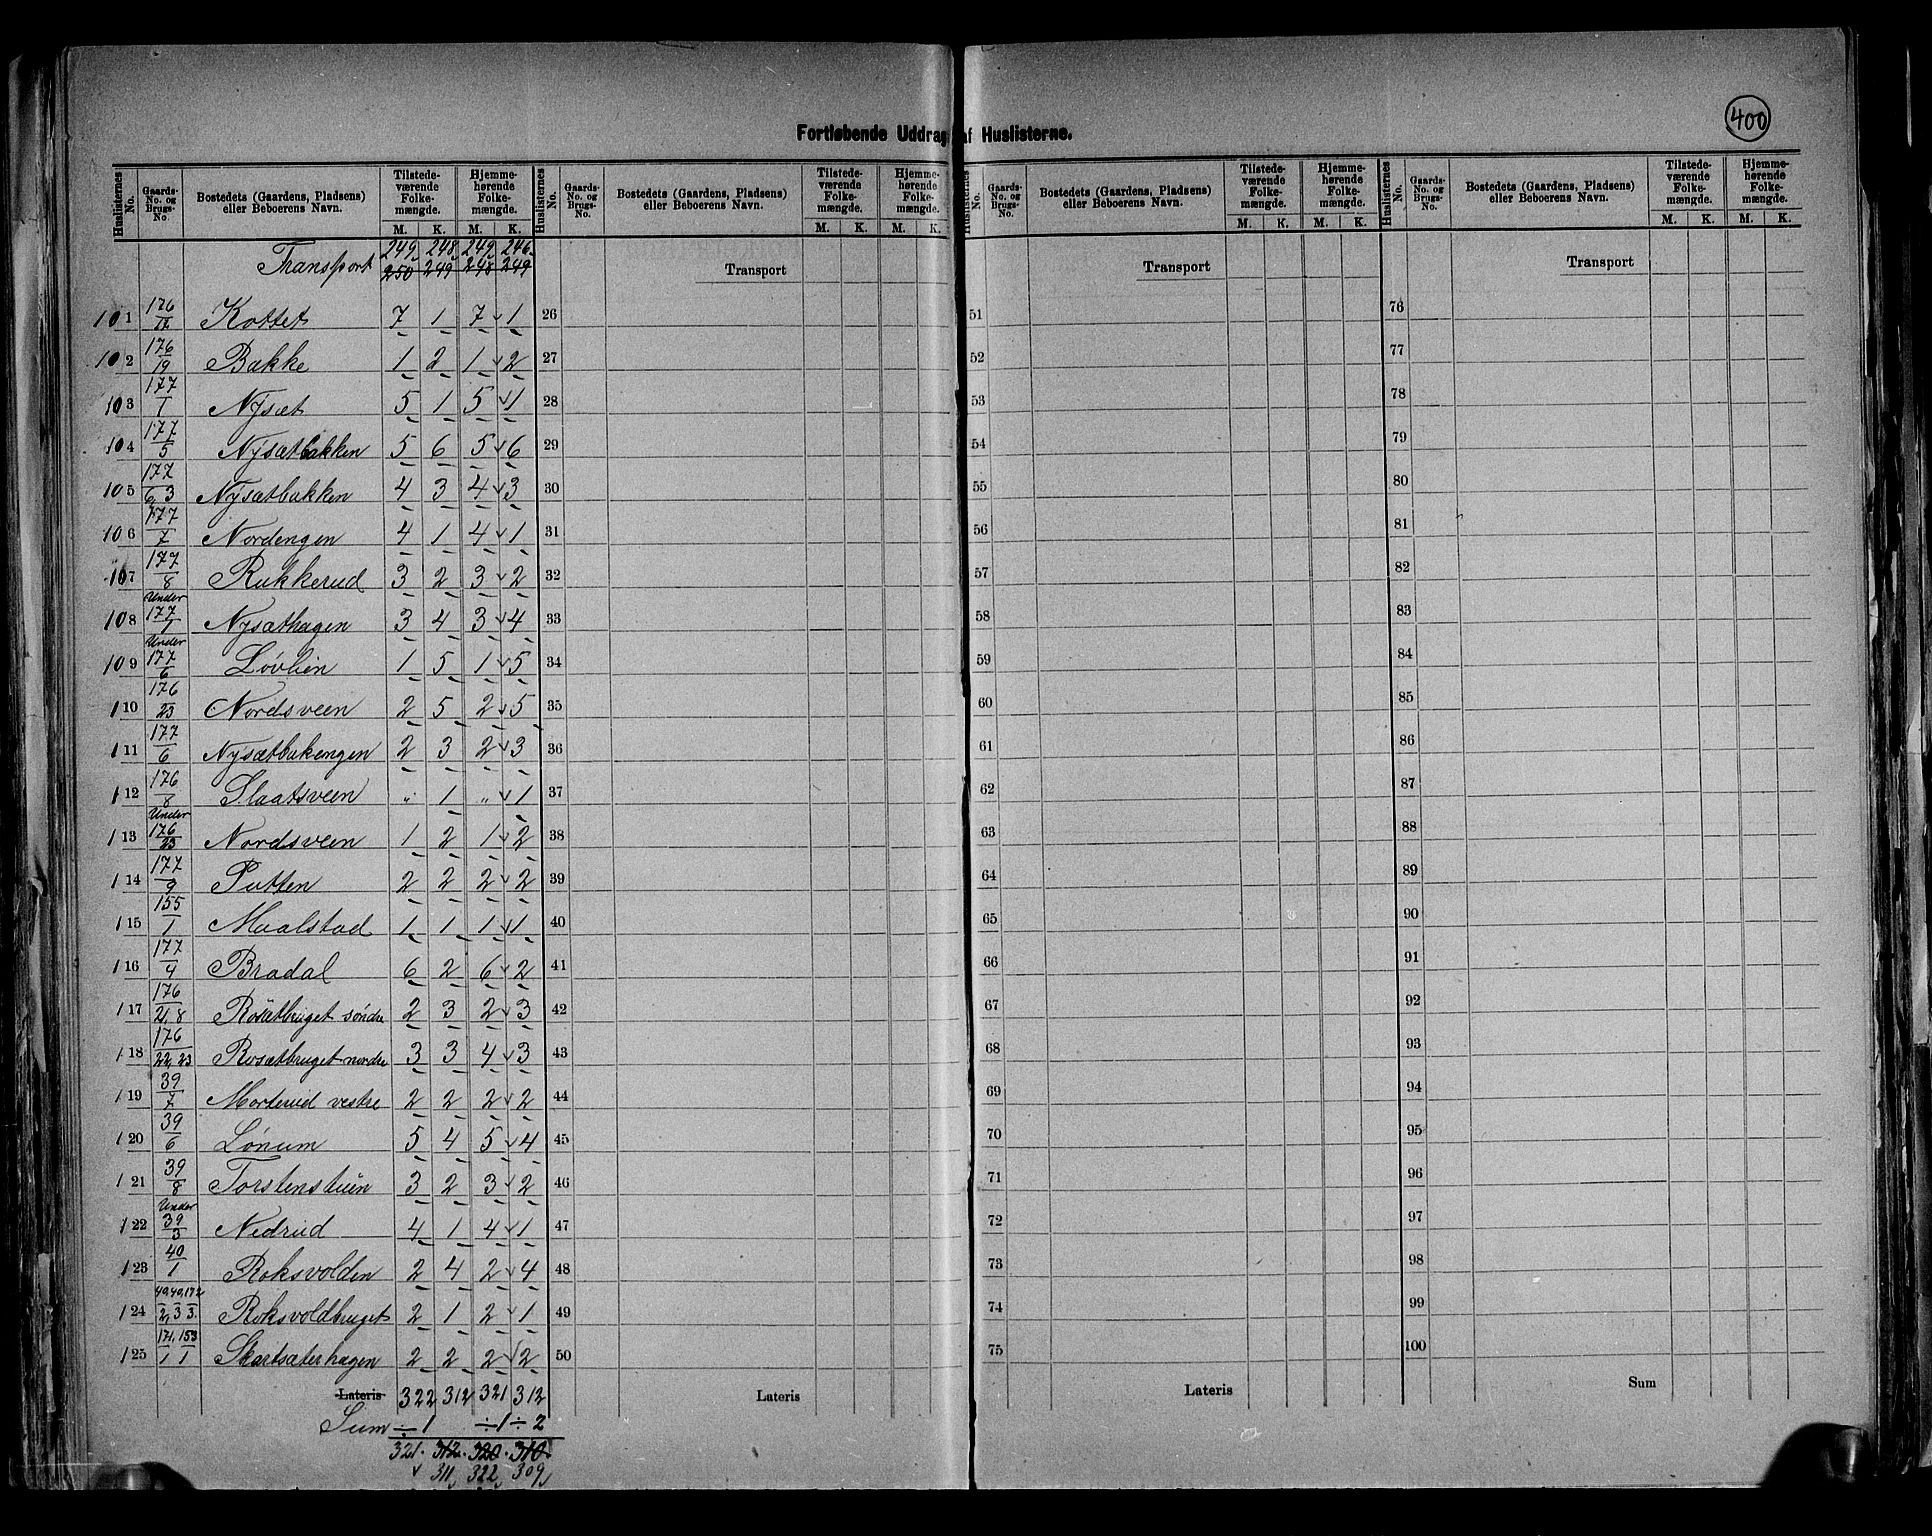 400
Fortløbende Uddrag af Huslisterne.
Huslisternes No. | Gaards-No. og Brugs-No. | Bostedets (Gaardens, Pladsens) eller Beboerens Navn. | Tilstedeværende Folkemængde. M. K. | Hjemmehørende Folkemængde. M. K.
Transport 249 248 249 246
250 249 248 249
101 176/17 Kottet 7 1 7 1
102 176/19 Bakke 1 2 1 2
103 177/1 Nysæt 5 1 5 1
104 177/5 Nysætbakken 5 6 5 6
105 177/6,3 Nysætbakken 4 3 4 3
106 177/7 Nordengen 4 1 4 1
107 177/8 Rukkerud 3 2 3 2
108 Under 177/1 Nysæthagen 3 4 3 4
109 Under 177/6 Løvlien 1 5 1 5
110 176/23 Nordsveen 2 5 2 5
111 177/6 Nysætbakengen 2 3 2 3
112 176/8 Slaatsveen " 1 " 1
113 Under 176/23 Nordsveen 1 2 1 2
114 177/9 Putten 2 2 2 2
115 155/1 Maalstad 1 1 1 1
116 177/4 Bradal 6 2 6 2
117 176/21,8 Rosætbruget søndre 2 3 2 3
118 176/22,23 Rosætbruget nordre 3 3 4 3
119 39/7 Morterud vestre 2 2 2 2
120 39/6 Lønum 5 4 5 4
121 39/8 Torstenstuen 3 2 3 2
122 Under 39/3 Nedrud 4 1 4 1
123 40/1 Roksvolden 2 4 2 4
124 40,40,172/2,3 3. Roksvoldbruget 2 1 2 1
125 171,153/1 1 Skartsæterhagen 2 2 2 2
Lateris 322 312 321 312
Sum ÷1 ÷1 ÷2
321 312 320 310
311 322 309
Huslisternes No. | Gaards-No. og Brugs-No. | Bostedets (Gaardens, Pladsens) eller Beboerens Navn. | Tilstedeværende Folkemængde. M. K. | Hjemmehørende Folkemængde. M. K.
Transport
26
27
28
29
30
31
32
33
34
35
36
37
38
39
40
41
42
43
44
45
46
47
48
49
50
Lateris
Huslisternes No. | Gaards-No. og Brugs-No. | Bostedets (Gaardens, Pladsens) eller Beboerens Navn. | Tilstedeværende Folkemængde. M. K. | Hjemmehørende Folkemængde. M. K.
Transport
51
52
53
54
55
56
57
58
59
60
61
62
63
64
65
66
67
68
69
70
71
72
73
74
75
Lateris
Huslisternes No. | Gaards-No. og Brugs-No. | Bostedets (Gaardens, Pladsens) eller Beboerens Navn. | Tilstedeværende Folkemængde. M. K. | Hjemmehørende Folkemængde. M. K.
Transport
76
77
78
79
80
81
82
83
84
85
86
87
88
89
90
91
92
93
94
95
96
97
98
99
100
Sum